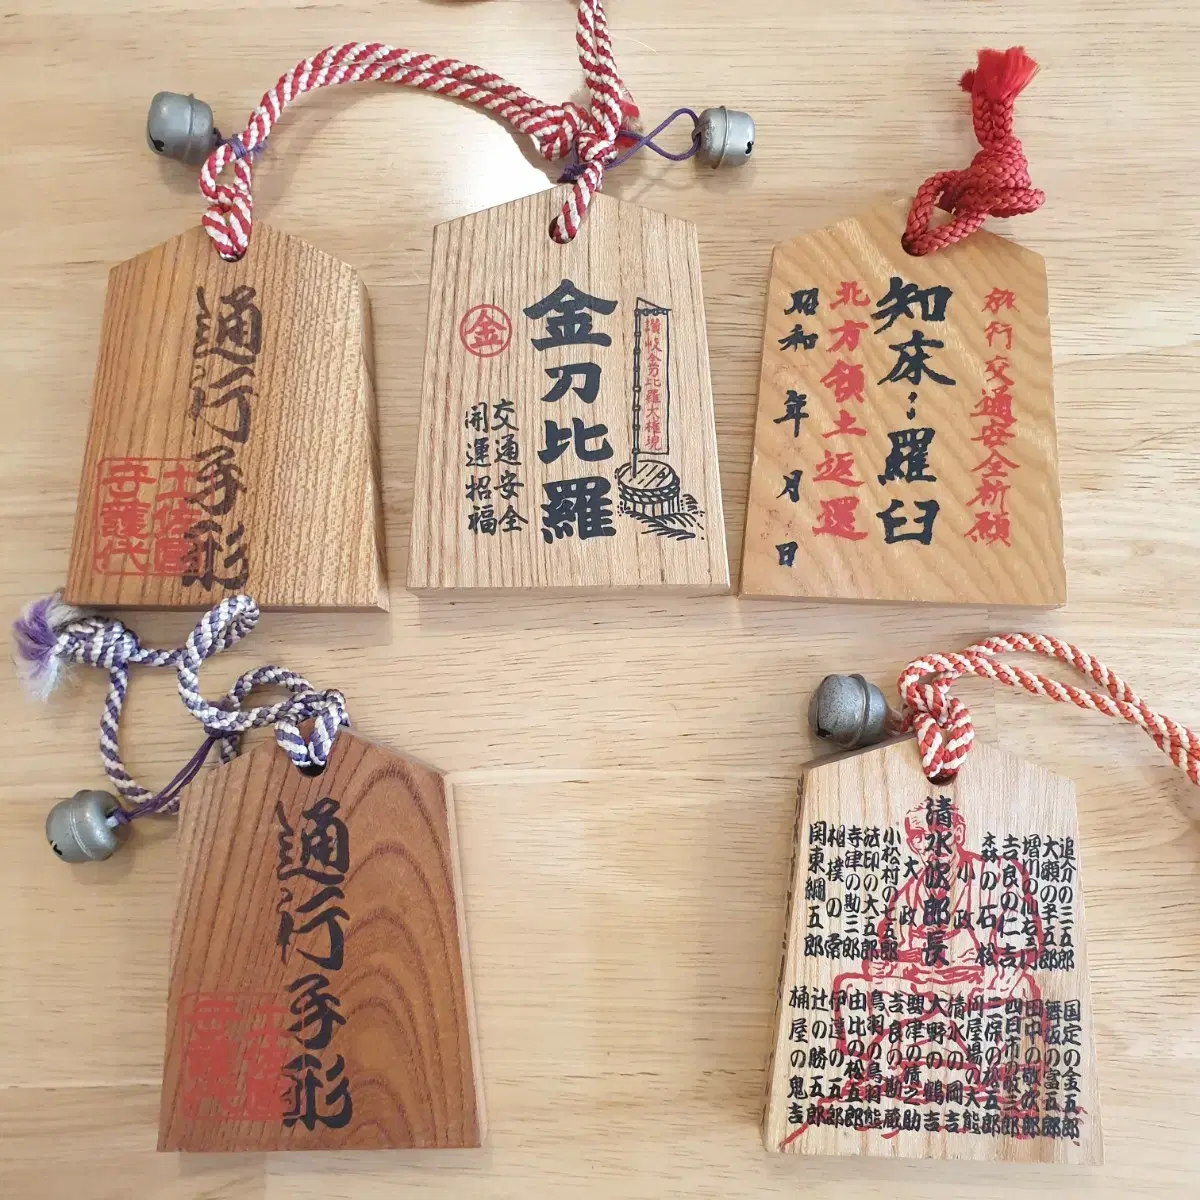 通行手形
土佐国
守護代
金刀比羅
金
讃岐金刀比羅大権現
交通安全
開運招福
旅行交通安全祈願
知床:羅臼
北方領土返還
昭和 年 月 日
通行手形
清水次郎長
追分の三五郎
大瀬の半五郎
増川の仙右エ門
吉良の仁吉
森の石松
小政
大政
小松村の七五郎
法印の大五郎
寺津の勘三郎
相撲の常
関東綱五郎
国定の金五郎
舞坂の富五郎
田中の敬次郎
四日市の敬三郎
三保の松五郎
問屋場の大熊
清水の岡吉
大野の鶴吉
興津の清之助
吉良の勘蔵
鳥羽の鳥羽熊
由比の松五郎
伊達の五郎
辻の勝五郎
桶屋の鬼吉